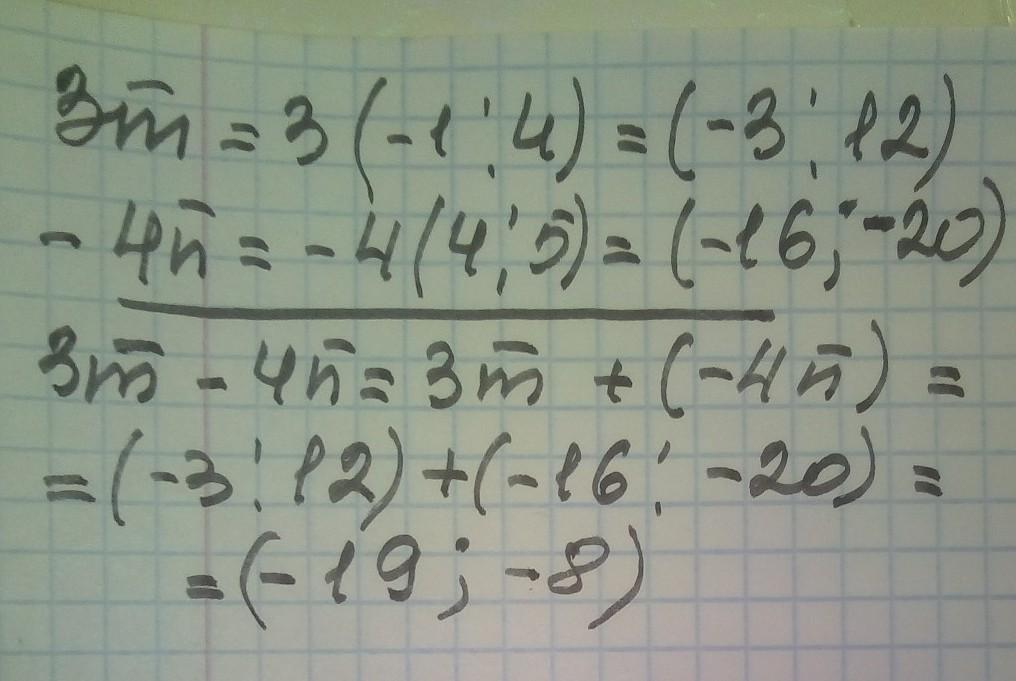 3m̅ = 3(-1; 4) = (-3; 12)
- 4n̅ = -4(4; 5) = (-16; -20)
3m̅ - 4n̅ = 3m̅ + (-4n̅) =
= (-3; 12) + (-16; -20) =
= (-19; -8)